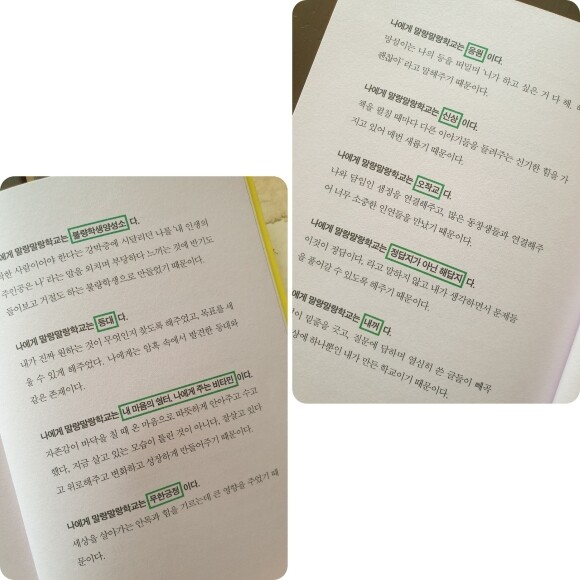 나에게 말랑말랑학교는 불량학생양성소 다.
한 사람이어야 한다는 강박증에 시달리던 나를 '내 인생의
주인공은 나' 라는 말을 외치며 부당하다 느끼는 것에 반기도
들어보고 거절도 하는 불량학생으로 만들었기 때문이다.
나에게 말랑말랑학교는 등대 다.
내가 진짜 원하는 것이 무엇인지 찾도록 해주었고, 목표를 세
울 수 있게 해주었다. 나에게는 암흑 속에서 발견한 등대와
같은 존재이다.
나에게 말랑말랑학교는 내 마음의 쉼터, 나에게 주는 비타민 이다.
자존감이 바닥을 칠 때 온 마음으로 따뜻하게 안아주고 수고
했다, 지금 살고 있는 모습이 틀린 것이 아니다, 잘살고 있다
고 위로해주고 변화하고 성장하게 만들어주기 때문이다.
나에게 말랑말랑학교는 무한긍정 이다.
세상을 살아가는 안목과 힘을 기르는데 큰 영향을 주었기 때
문이다.
나에게 말랑말랑학교는 응원 이다.
망설이는 나의 등을 떠밀며 '니가 하고 싶은 거 다 해,
괜찮아' 라고 말해주기 때문이다.
나에게 말랑말랑학교는 신상 이다.
책을 펼칠 때마다 다른 이야기들을 들려주는 신기한 힘을 가
지고 있어 매번 새롭기 때문이다.
나에게 말랑말랑학교는 오작교 다.
나와 담임인 샘정을 연결해주고, 많은 동창생들과 연결해주
어 너무 소중한 인연들을 만났기 때문이다.
나에게 말랑말랑학교는 정답지가 아닌 해답지 다.
이것이 정답이다, 라고 말하지 않고 내가 생각하면서 문제들
을 풀어갈 수 있도록 해주기 때문이다.
나에게 말랑말랑학교는 내꺼 다.
이 밑줄을 긋고, 질문에 답하며 열심히 쓴 글들이 빼곡
상에 하나뿐인 내가 만든 학교이기 때문이다.